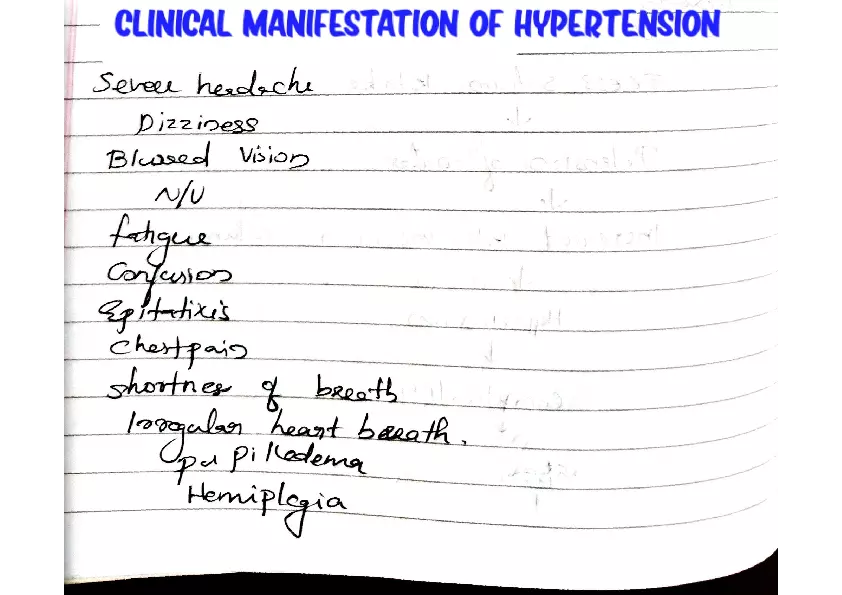 CLINICAL MANIFESTATION OF HYPERTENSION
Severe headache
Dizziness
Blurred Vision
N/V
fatigue
Confusion
Epitatixis
Chestpain
shortnes of breath
Irregular heart breath.
papillodema
Hemiplegia